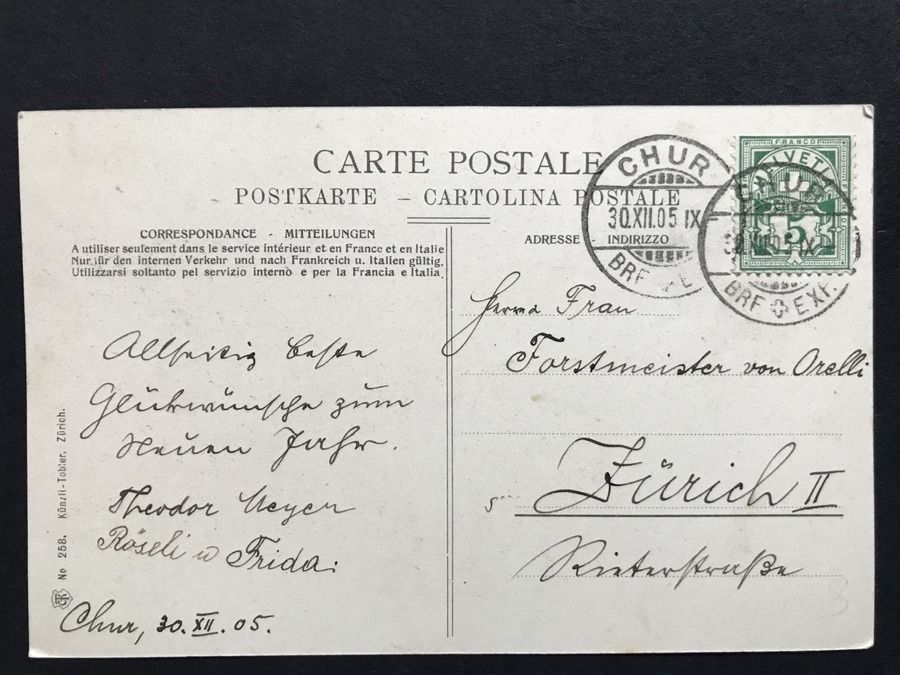 CARTE POSTALE
POSTKARTE – CARTOLINA POSTALE
CORRESPONDANCE - MITTEILUNGEN
A utiliser seulement dans le service intérieur et en France et en Italie
Nur für den internen Verkehr und nach Frankreich u. Italien gültig.
Utilizzarsi soltanto pel servizio interno e per la Francia e Italia.
ADRESSE – INDIRIZZO
CHUR
30.XII.05 IX
BRF
FRANCO
HELVETIA
5
CHUR
30.XII.05 IX
BRF EXP.
Allseitig beste
Glückwünsche zum
Neuen Jahr.
Theodor Meyer
Röseli u Frida.
Chur, 30. XII. 05.
Frau
Forstmeister von Orelli
Zürich II
Rieterstraße
No 258. Künzli-Tobler, Zürich.